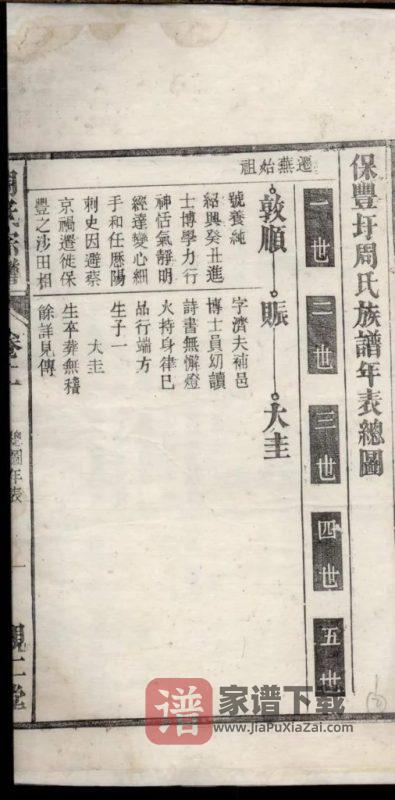 保豐圩周氏族譜年表總圖
一世
二世
三世
四世
五世
遷蕪始祖
敦順
賑
大圭
號養純
紹興癸丑進
士博學力行
神恬氣靜明
經達變心細
手和任歷陽
刺史因避蔡
京禍遷徙保
豐之沙田相
字濟夫補邑
博士員幼讀
詩書無懈燈
火持身律已
品行端方
生子一
大圭
生卒葬無稽
餘詳見傳
周氏宗譜
卷十一
總圖年表
一
親仁堂
譜
家谱下载
www.JiaPuXiaZai.com